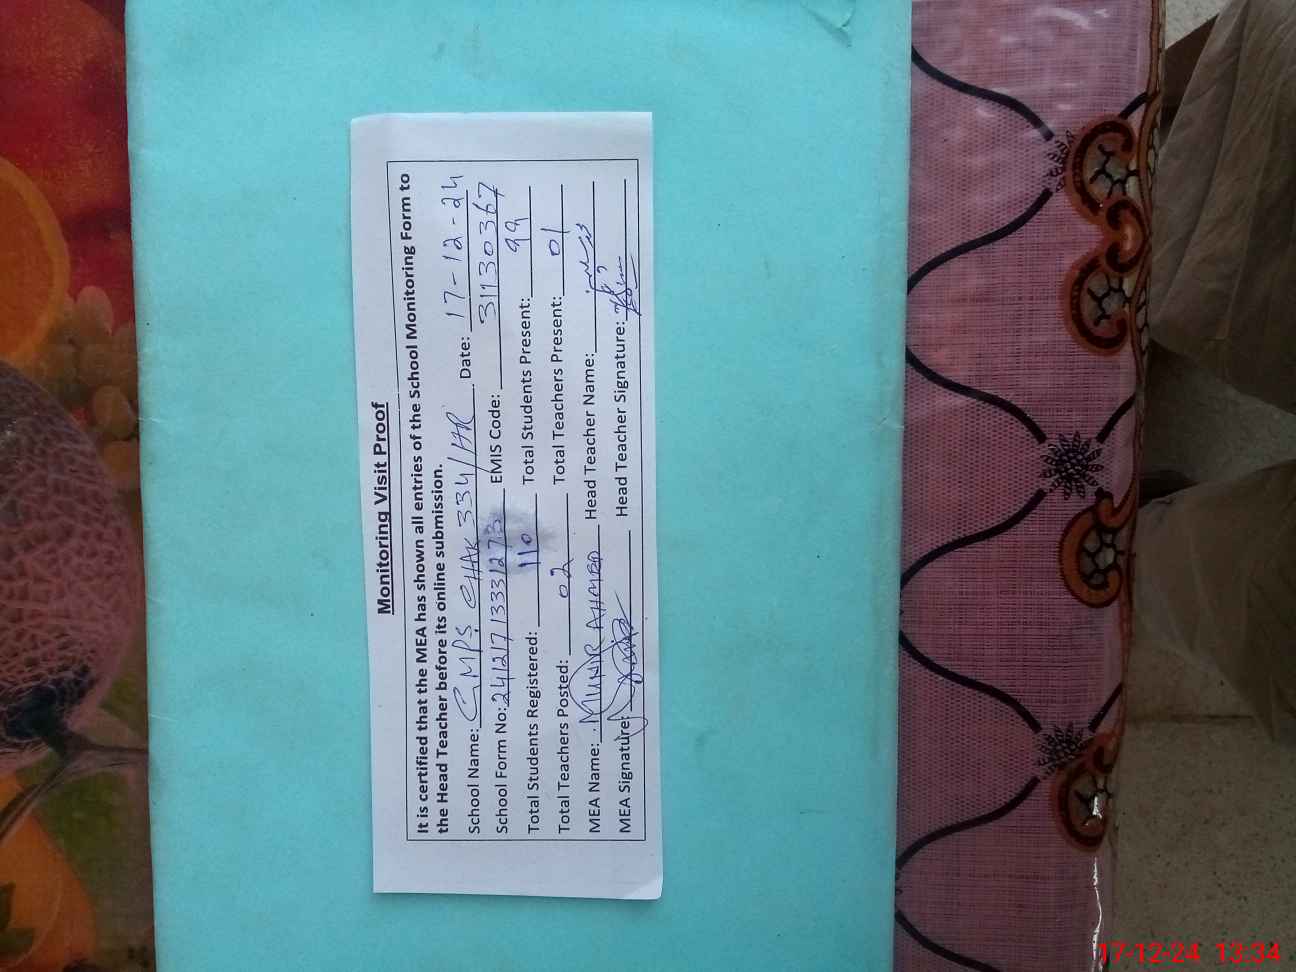 Monitoring Visit Proof
It is certified that the MEA has shown all entries of the School Monitoring Form to
the Head Teacher before its online submission.
School Name: GMPS CHAK 334/HR Date: 17-12-24
School Form No: 24121713331273 EMIS Code: 31130367
Total Students Registered: 110 Total Students Present: 99
Total Teachers Posted: 02 Total Teachers Present: 01
MEA Name: MUNIR AHMED Head Teacher Name:
MEA Signature: Head Teacher Signature:
17-12-24 13:34